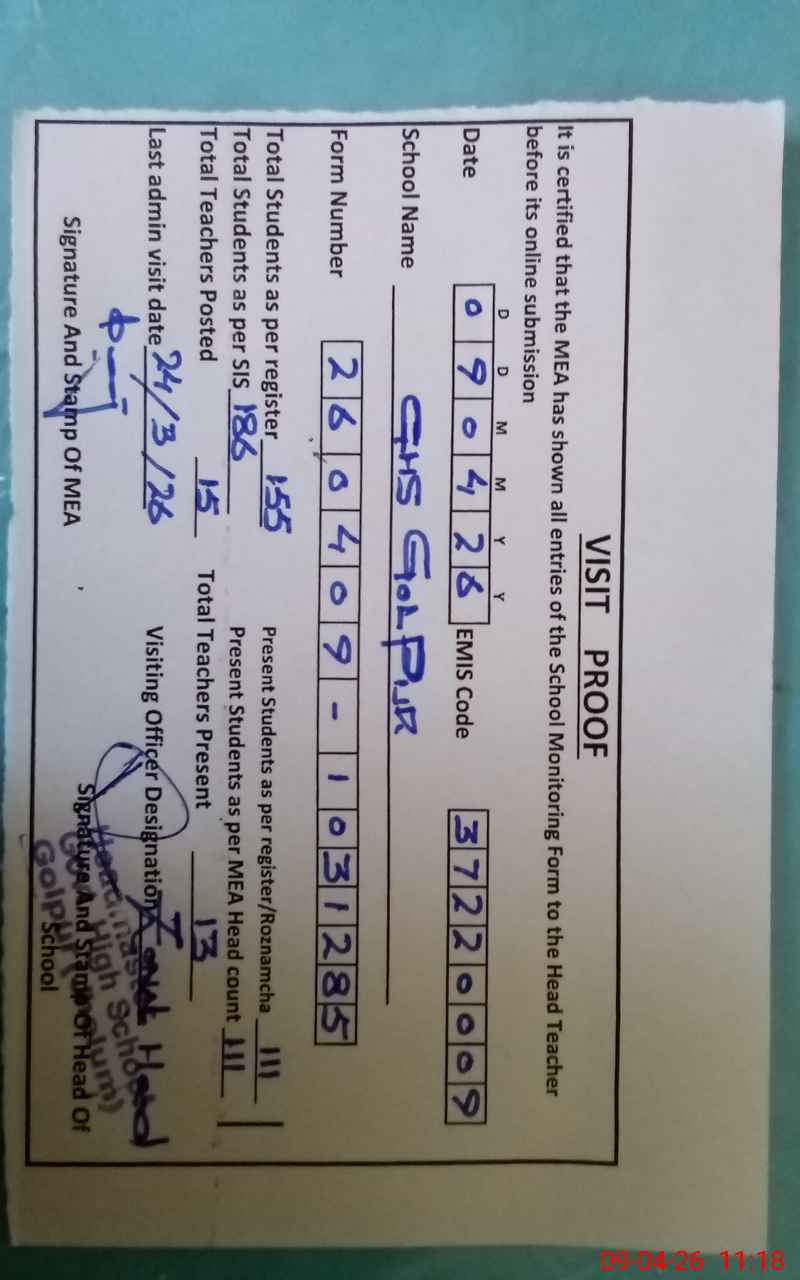 VISIT PROOF
It is certified that the MEA has shown all entries of the School Monitoring Form to the Head Teacher
before its online submission
D D M M Y Y
Date 0 9 0 4 2 6 EMIS Code 3 7 2 2 0 0 0 9
School Name GHS GOLPUR
Form Number 2 6 0 4 0 9 - 1 0 3 1 2 8 5
Total Students as per register 155 Present Students as per register/Roznamcha 111
Total Students as per SIS 186 Present Students as per MEA Head count 111
Total Teachers Posted 15 Total Teachers Present 13
Last admin visit date 24/3/26 Visiting Officer Designation Head
Signature And Stamp Of MEA Signature And Stamp Of Head Of
School
High School
Golpur
09-04-26 11:18